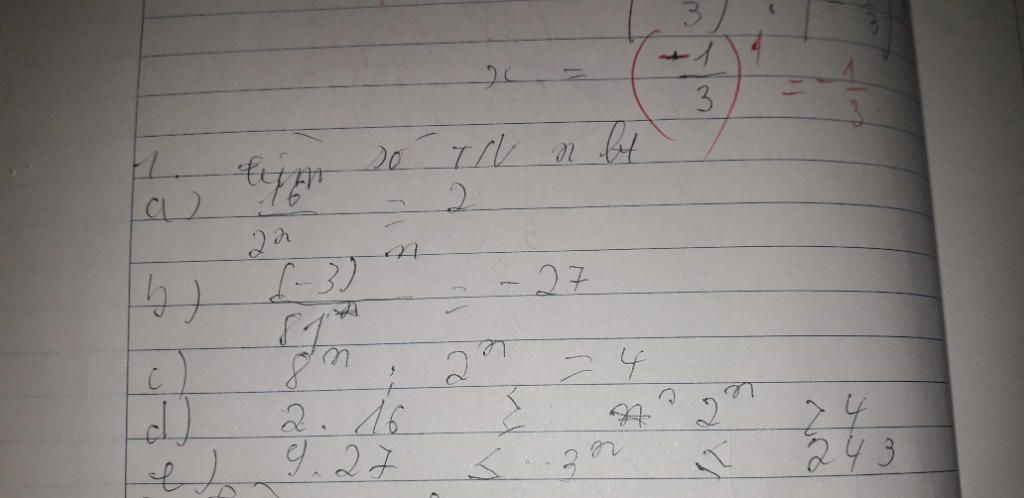 3) : 3
x = (-1/3)^1 = -1/3
1. tìm số TN n bt
a) 16/2^n = 2
b) (-3)^n/81 = -27
c) 8^n : 2^n = 4
d) 2.16 ≥ 2^n ≥ 4
e) 9.27 ≤ 3^n ≤ 243